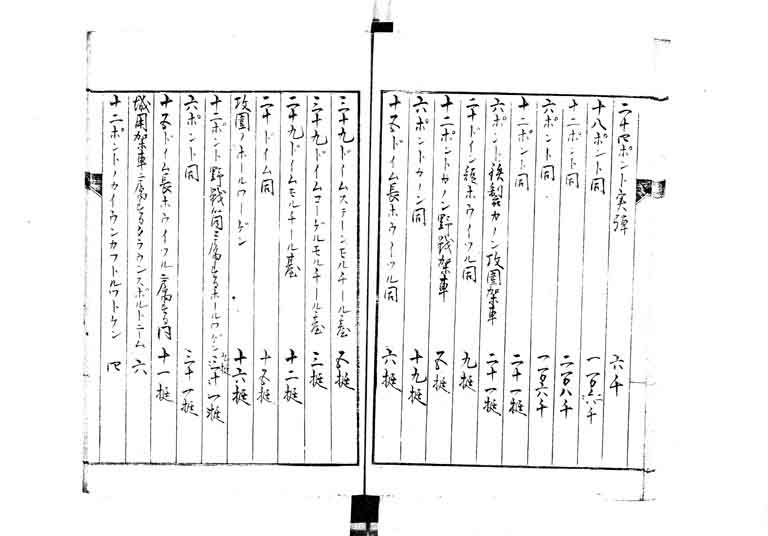 二十四ポント実弾 六千
十八ポント同 一一〇六千
十二ポント同 二一〇八千
六ポント同 一一〇六千
十二ポント同 二十一挺
六ポント鉄製カノン攻圍架車 二十一挺
二十ドイム短ホウイツル同 九挺
十二ポントカノン野戦架車 五挺
六ポントカノン同 十九挺
十五ドイム長ホウイツル同 六挺
三十九ドイムステーンモルチール臺 五挺
三十九ドイムコーゲルモルチール臺 三挺
二十九ドイムモルチール臺 十二挺
二十ドイム同 十五挺
攻圍ノホールワーゲン 十六挺
十二ポント野戦筒ニ属セルホールワゲン 三十一挺
六ポント同 三十一挺
十五ドイム長ホウイツルニ属セル同 十一挺
城用架車ニ属セル 六
十二ポント 四